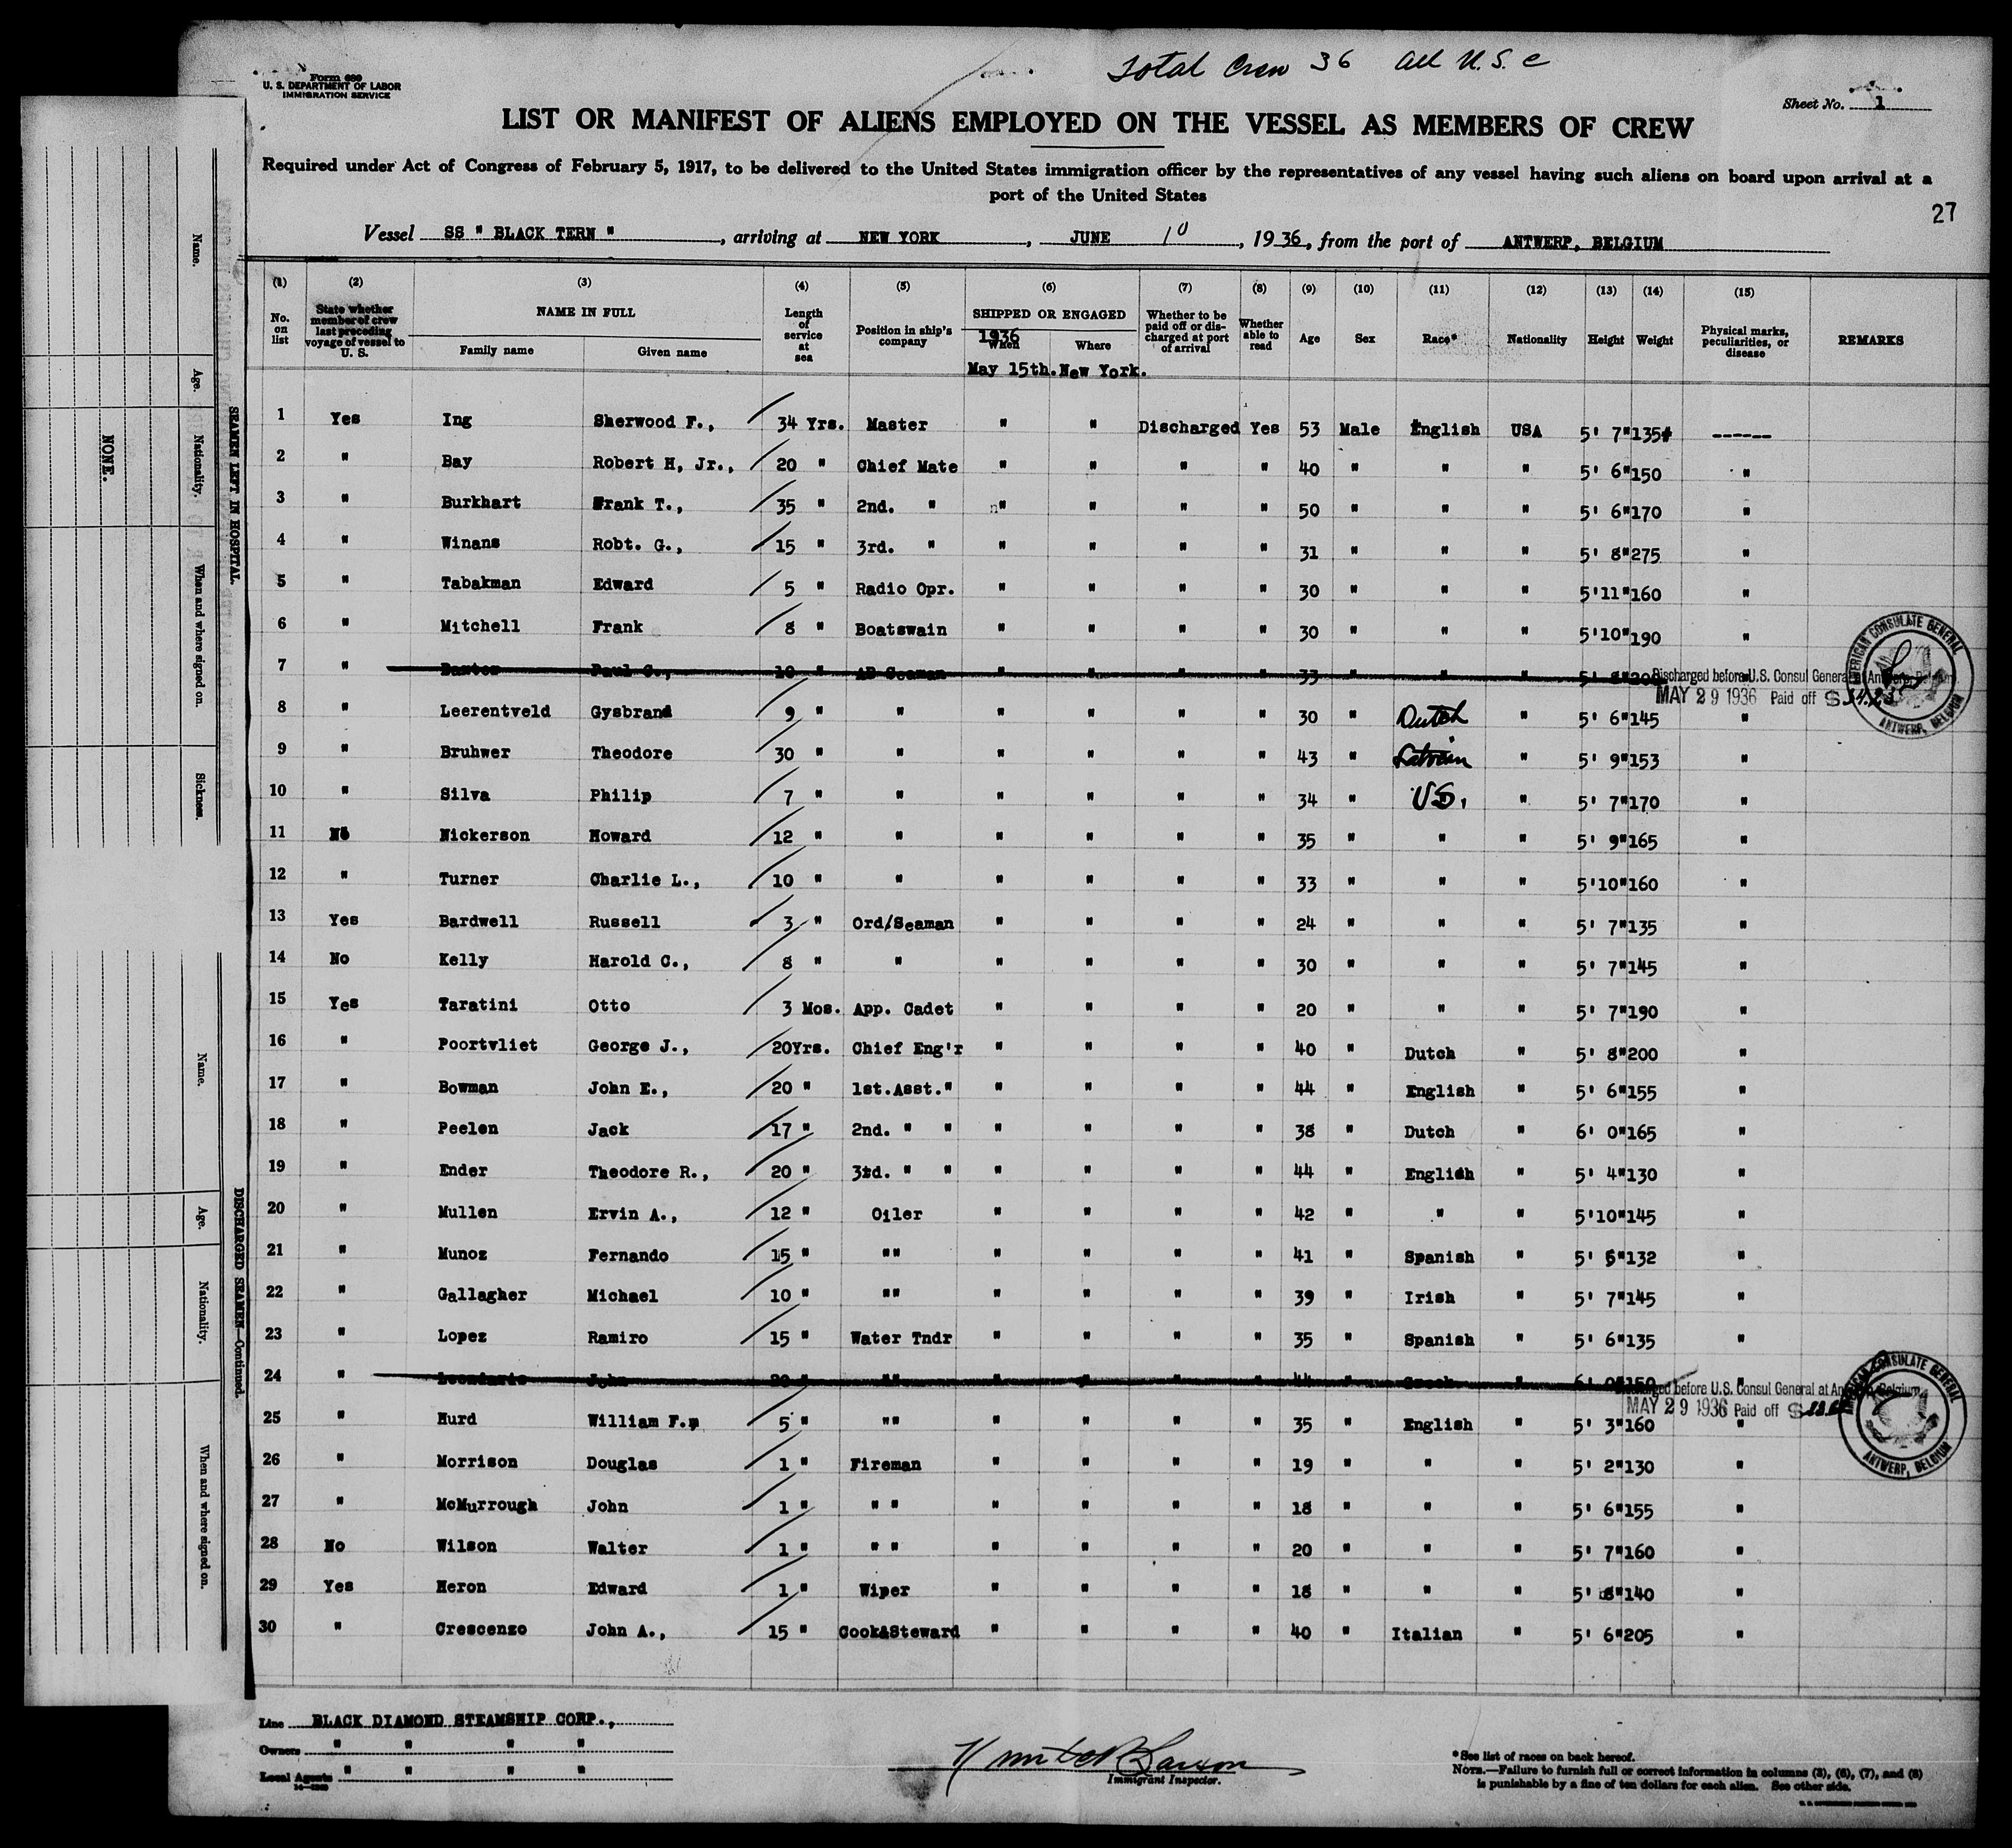 Total Crew 36 All U.S.C
Form 689
U. S. DEPARTMENT OF LABOR
IMMIGRATION SERVICE
Sheet No. 1
LIST OR MANIFEST OF ALIENS EMPLOYED ON THE VESSEL AS MEMBERS OF CREW
Required under Act of Congress of February 5, 1917, to be delivered to the United States immigration officer by the representatives of any vessel having such aliens on board upon arrival at a
port of the United States
27
Vessel SS " BLACK TERN ", arriving at NEW YORK, JUNE 10, 1936, from the port of ANTWERP, BELGIUM
(1) (2) (3) (4) (5) (6) (7) (8) (9) (10) (11) (12) (13) (14) (15)
No. on list
State whether member of crew last preceding voyage of vessel to U. S.
NAME IN FULL
Family name
Given name
Length of service at sea
Position in ship's company
SHIPPED OR ENGAGED
1936
When
Where
Whether to be paid off or discharged at port of arrival
Whether able to read
Age
Sex
Race*
Nationality
Height
Weight
Physical marks, peculiarities, or disease
REMARKS
May 15th. New York.
1 Yes Ing Sherwood F., 34 Yrs. Master " " Discharged Yes 53 Male English USA 5' 7" 135# ------
2 " Bay Robert H, Jr., 20 " Chief Mate " " " " 40 " " " 5' 6" 150 "
3 " Burkhart Frank T., 35 " 2nd. " " " " " 50 " " " 5' 6" 170 "
4 " Winans Robt. G., 15 " 3rd. " " " " " 31 " " " 5' 8" 275 "
5 " Tabakman Edward 5 " Radio Opr. " " " " 30 " " " 5'11" 160 "
6 " Mitchell Frank 8 " Boatswain " " " " 30 " " " 5'10" 190 "
7 " Baxter Paul C., 10 " AB Seaman " " " " 33 " " " 5' 8" 200
Discharged before U.S. Consul General at Antwerp, Belgium
MAY 29 1936 Paid off $
AMERICAN CONSULATE GENERAL ANTWERP, BELGIUM
8 " Leerentveld Gysbrand 9 " " " " " " 30 " Dutch " 5' 6" 145 "
9 " Bruhwer Theodore 30 " " " " " " 43 " Latvian " 5' 9" 153 "
10 " Silva Philip 7 " " " " " " 34 " U.S. " 5' 7" 170 "
11 No Nickerson Howard 12 " " " " " " 35 " " " 5' 9" 165 "
12 " Turner Charlie L., 10 " " " " " " 33 " " " 5'10" 160 "
13 Yes Bardwell Russell 3 " Ord/Seaman " " " " 24 " " " 5' 7" 135 "
14 No Kelly Harold C., 8 " " " " " " 30 " " " 5' 7" 145 "
15 Yes Taratini Otto 3 Mos. App. Cadet " " " " 20 " " " 5' 7" 190 "
16 " Poortvliet George J., 20Yrs. Chief Eng'r " " " " 40 " Dutch " 5' 8" 200 "
17 " Bowman John E., 20 " 1st.Asst." " " " " 44 " English " 5' 6" 155 "
18 " Peelen Jack 17 " 2nd. " " " " " " 38 " Dutch " 6' 0" 165 "
19 " Ender Theodore R., 20 " 3rd. " " " " " " 44 " English " 5' 4" 130 "
20 " Mullen Ervin A., 12 " Oiler " " " " 42 " " " 5'10" 145 "
21 " Munoz Fernando 15 " "" " " " " 41 " Spanish " 5' 5" 132 "
22 " Gallagher Michael 10 " "" " " " " 39 " Irish " 5' 7" 145 "
23 " Lopez Ramiro 15 " Water Tndr " " " " 35 " Spanish " 5' 6" 135 "
24 " John 20 " "" " " " " 44 " Greek " 6' 0" 150 "
Discharged before U.S. Consul General at Antwerp, Belgium
MAY 29 1936 Paid off $
AMERICAN CONSULATE GENERAL ANTWERP, BELGIUM
25 " Hurd William F., 5 " "" " " " " 35 " English " 5' 3" 160 "
26 " Morrison Douglas 1 " Fireman " " " " 19 " " " 5' 2" 130 "
27 " McMurrough John 1 " " " " " " " 18 " " " 5' 6" 155 "
28 No Wilson Walter 1 " " " " " " " 20 " " " 5' 7" 160 "
29 Yes Heron Edward 1 " Wiper " " " " 18 " " " 5' 8" 140 "
30 " Crescenzo John A., 15 " Cook&Steward " " " " 40 " Italian " 5' 6" 205 "
Line BLACK DIAMOND STEAMSHIP CORP.,
Owners " " " "
Local Agents " " " "
Immigrant Inspector.
*See list of races on back hereof.
NOTE.—Failure to furnish full or correct information in columns (3), (6), (7), and (8)
is punishable by a fine of ten dollars for each alien. See other side.
SEAMEN LEFT IN HOSPITAL
Name.
Age.
Nationality.
When and where signed on.
Sickness.
NONE.
DISCHARGED SEAMEN—Continued.
Name.
Age.
Nationality.
When and where signed on.